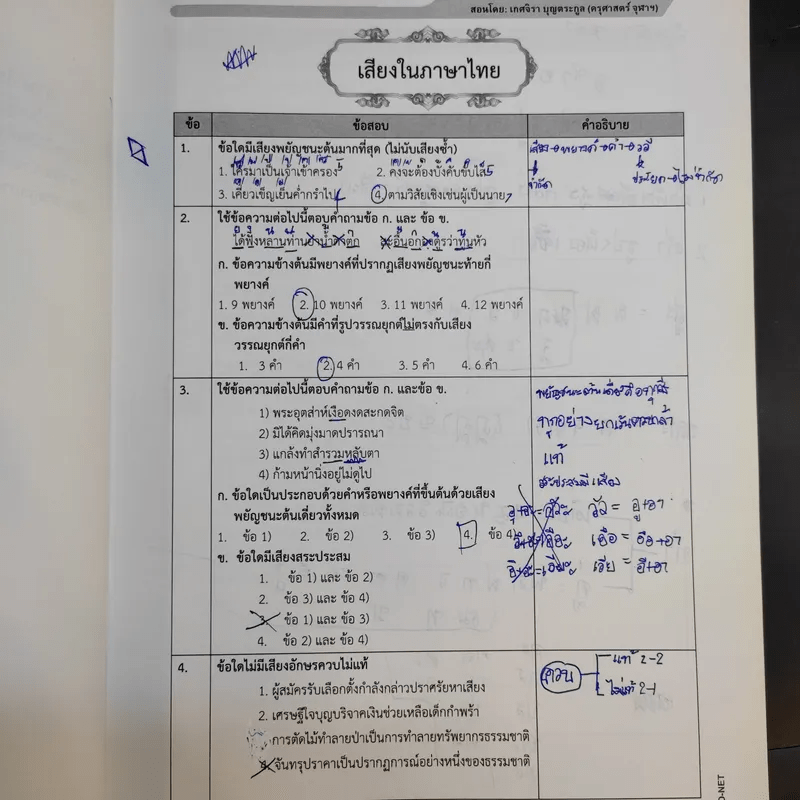 สอนโดย: เกศจิรา บุญตระกูล (ครุศาสตร์ จุฬาฯ)
เสียงในภาษาไทย
ข้อ ข้อสอบ คำอธิบาย
1. ข้อใดมีเสียงพยัญชนะต้นมากที่สุด (ไม่นับเสียงซ้ำ)
1. ใคร่มาเป็นเจ้าเข้าครอง 5 2. คงจะต้องบังคับขับไส 5
3. เคี่ยวเข็ญเย็นค่ำกรำไป 4. ตามวิสัยเชิงเช่นผู้เป็นนาย 7
2. ใช้ข้อความต่อไปนี้ตอบคำถามข้อ ก. และ ข้อ ข.
ก. ข้อความข้างต้นมีพยางค์ที่ปรากฏเสียงพยัญชนะท้ายกี่
พยางค์
1. 9 พยางค์ 2. 10 พยางค์ 3. 11 พยางค์ 4. 12 พยางค์
ข. ข้อความข้างต้นมีคำที่รูปวรรณยุกต์ไม่ตรงกับเสียง
วรรณยุกต์กี่คำ
1. 3 คำ 2. 4 คำ 3. 5 คำ 4. 6 คำ
3. ใช้ข้อความต่อไปนี้ตอบคำถามข้อ ก. และข้อ ข.
1) พระอุตส่าห์เงือดงดสะกดจิต
2) มิได้คิดมุ่งมาดปรารถนา
3) แกล้งทำสำรวมหลับตา
4) ก้ามหน้านิ่งอยู่ไม่ดูไป
ก. ข้อใดเป็นประกอบด้วยคำหรือพยางค์ที่ขึ้นต้นด้วยเสียง
พยัญชนะต้นเดี่ยวทั้งหมด
1. ข้อ 1) 2. ข้อ 2) 3. ข้อ 3) 4. ข้อ 4)
ข. ข้อใดมีเสียงสระประสม
1. ข้อ 1) และ ข้อ 2)
2. ข้อ 3) และ ข้อ 4)
3. ข้อ 1) และ ข้อ 3)
4. ข้อ 2) และ ข้อ 4)
แท้
สระประสมมี เสียง
อัว = อู+อา
เอือ = อือ+อา
เอีย = อี+อา
4. ข้อใดไม่มีเสียงอักษรควบไม่แท้
1. ผู้สมัครรับเลือกตั้งกำลังกล่าวปราศรัยหาเสียง
2. เศรษฐีใจบุญบริจาคเงินช่วยเหลือเด็กกำพร้า
การตัดไม้ทำลายป่าเป็นการทำลายทรัพยากรธรรมชาติ
4. จันทรุปราคาเป็นปรากฏการณ์อย่างหนึ่งของธรรมชาติ
ควบ
แท้ 2-2
ไม่แท้ 2-1
O-NET